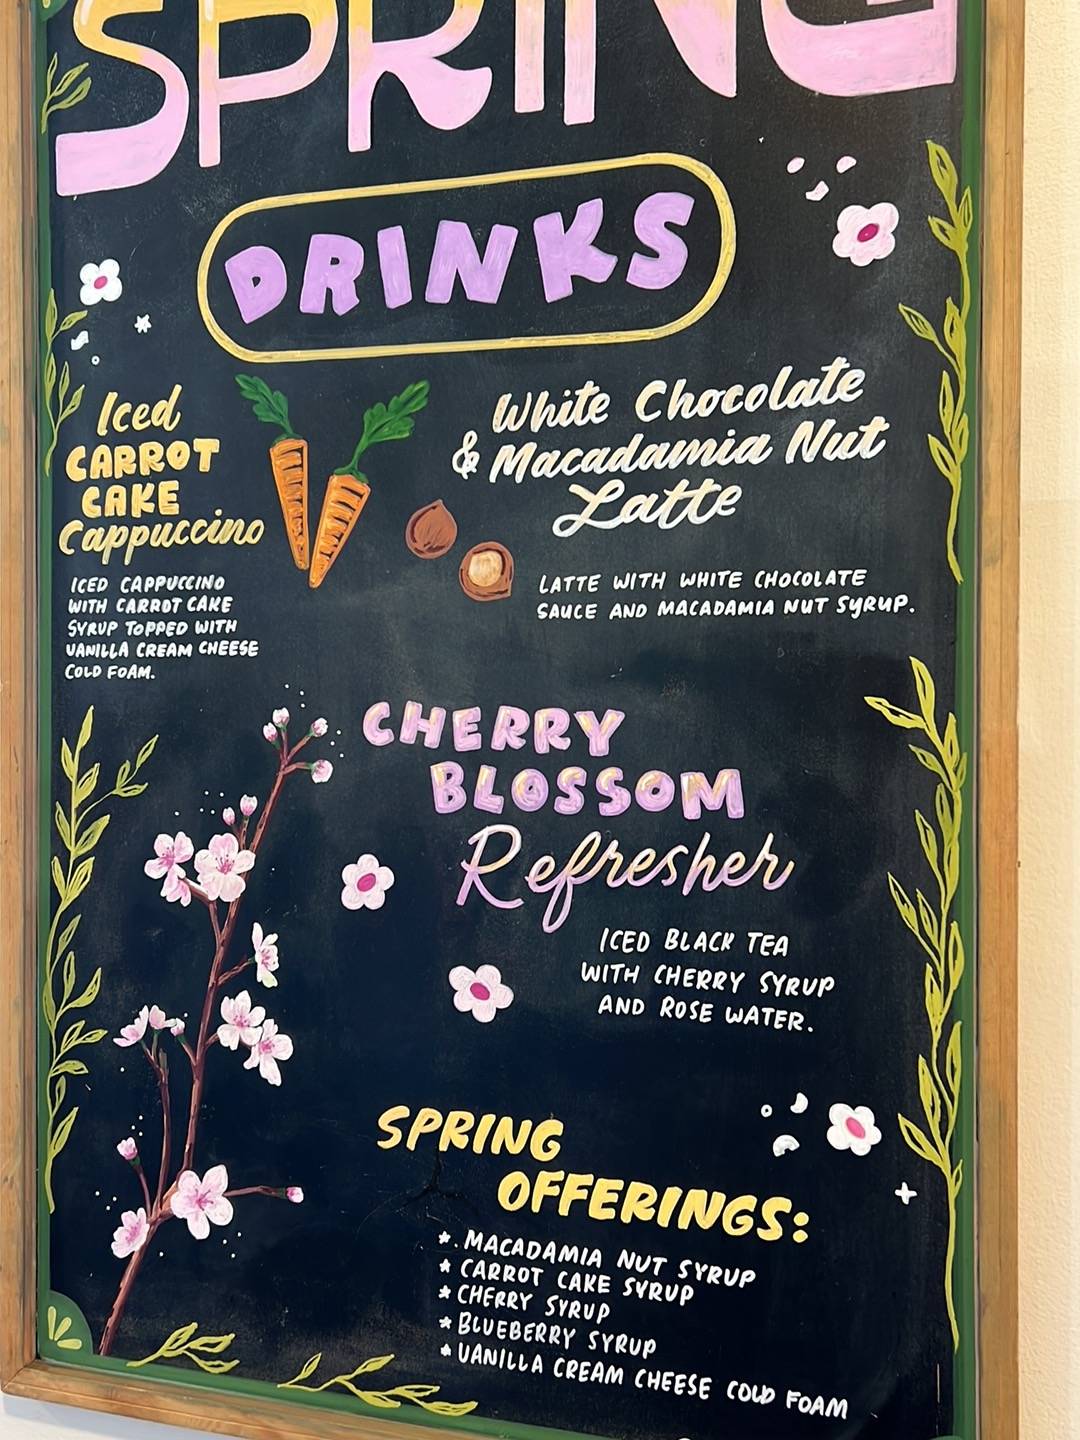 SPRING
DRINKS
Iced
CARROT
CAKE
Cappuccino
ICED CAPPUCCINO
WITH CARROT CAKE
SYRUP TOPPED WITH
VANILLA CREAM CHEESE
COLD FOAM.
White Chocolate
& Macadamia Nut
Latte
LATTE WITH WHITE CHOCOLATE
SAUCE AND MACADAMIA NUT SYRUP.
CHERRY
BLOSSOM
Refresher
ICED BLACK TEA
WITH CHERRY SYRUP
AND ROSE WATER.
SPRING
OFFERINGS:
*. MACADAMIA NUT SYRUP
* CARROT CAKE SYRUP
* CHERRY SYRUP
* BLUEBERRY SYRUP
* VANILLA CREAM CHEESE COLD FOAM